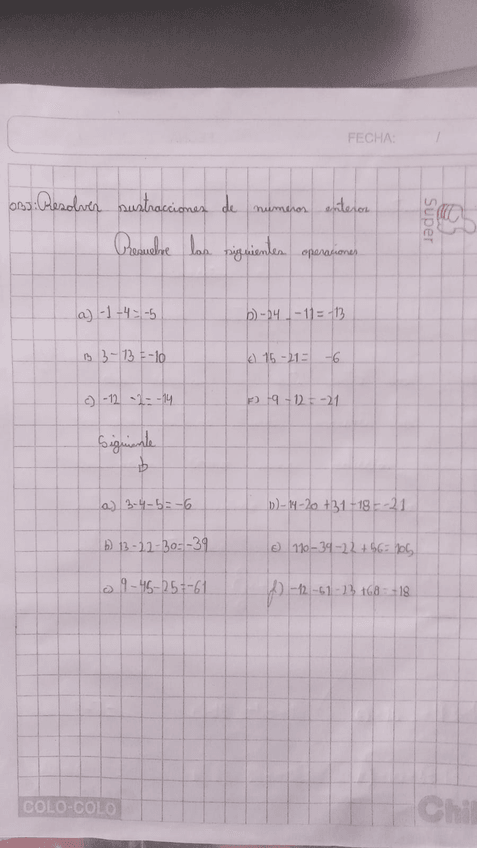 FECHA: /
OBJ: Resolver sustracciones de numeros enteros
Super
Resuelve las siguientes operaciones
a) -1 -4 = -5
D) -24 - -11 = -13
B 3 - 13 = -10
e) 15 - 21 = -6
c) -12 -2 = -14
F) -9 - 12 = -21
Siguiente
a) 3-4-5 = -6
D) -14-20 +31 -18 = -21
b) 13-22-30 = -39
e) 110-39-22 +56 = 105
c) 9-45-25 = -61
f) -12 -61 -13 +68 = -18
COLO-COLO
Chil